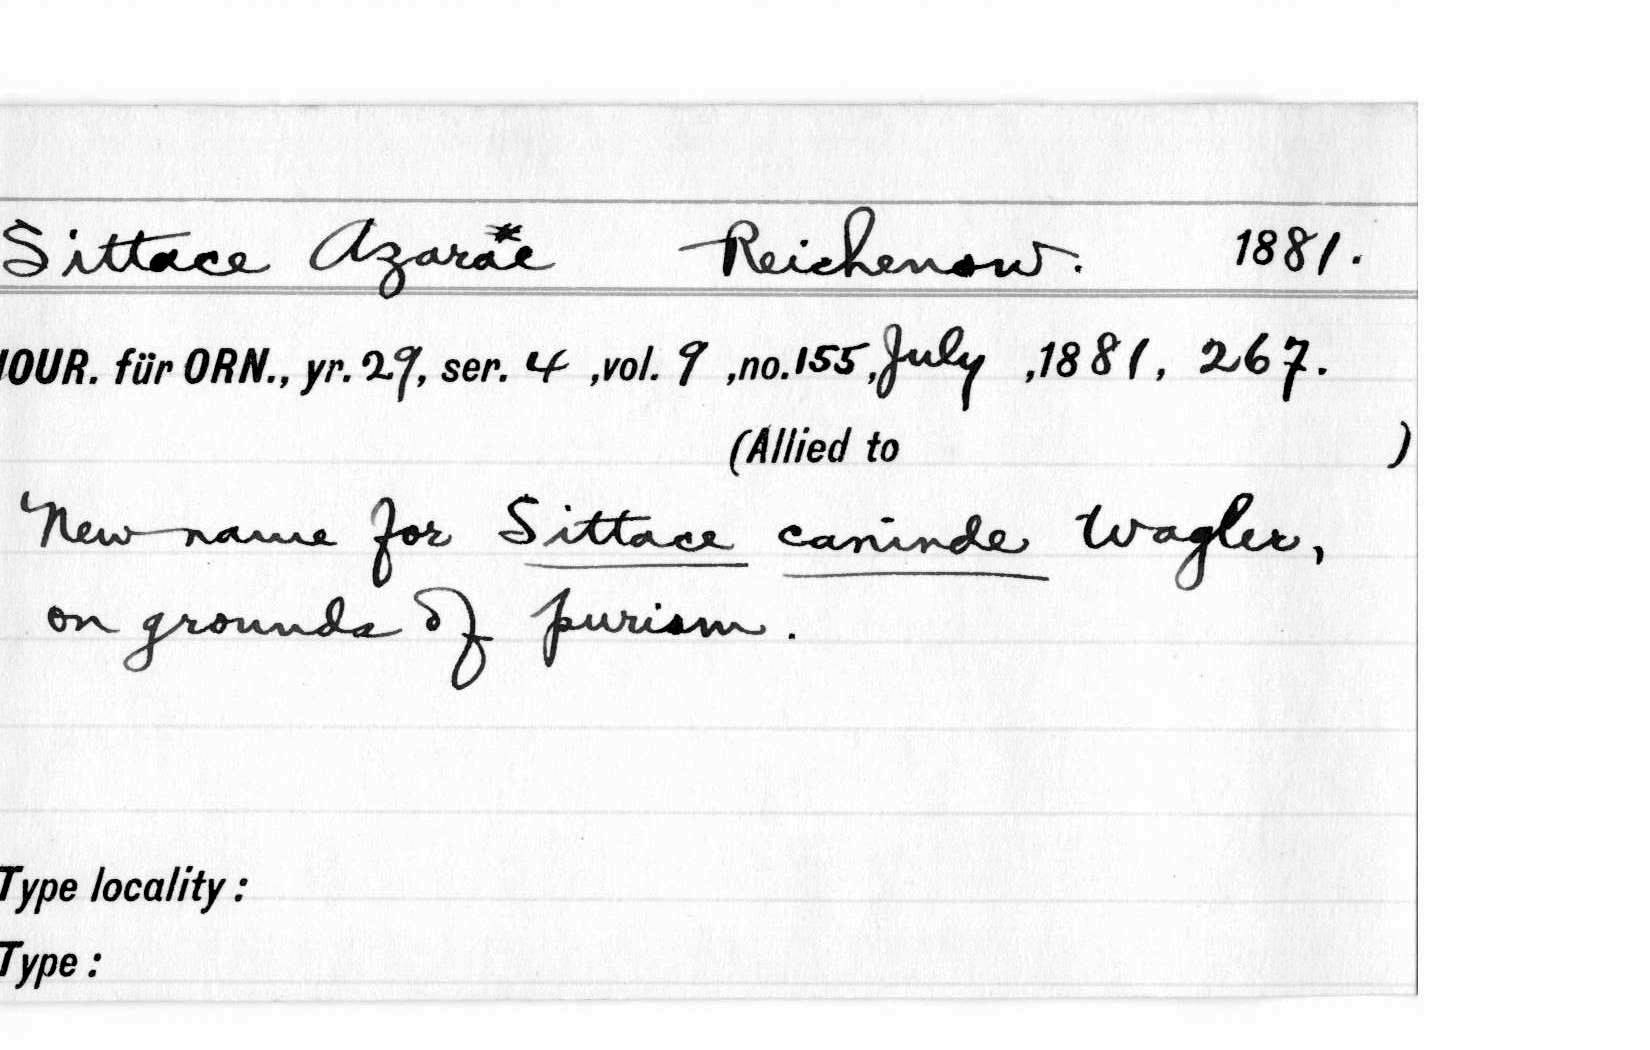 Sittace Azarae* Reichenow. 1881.
JOUR. für ORN., yr. 29, ser. 4 ,vol. 9 ,no. 155, July ,1881, 267.
(Allied to )
New name for Sittace caninde Wagler,
on grounds of purism.
Type locality:
Type: